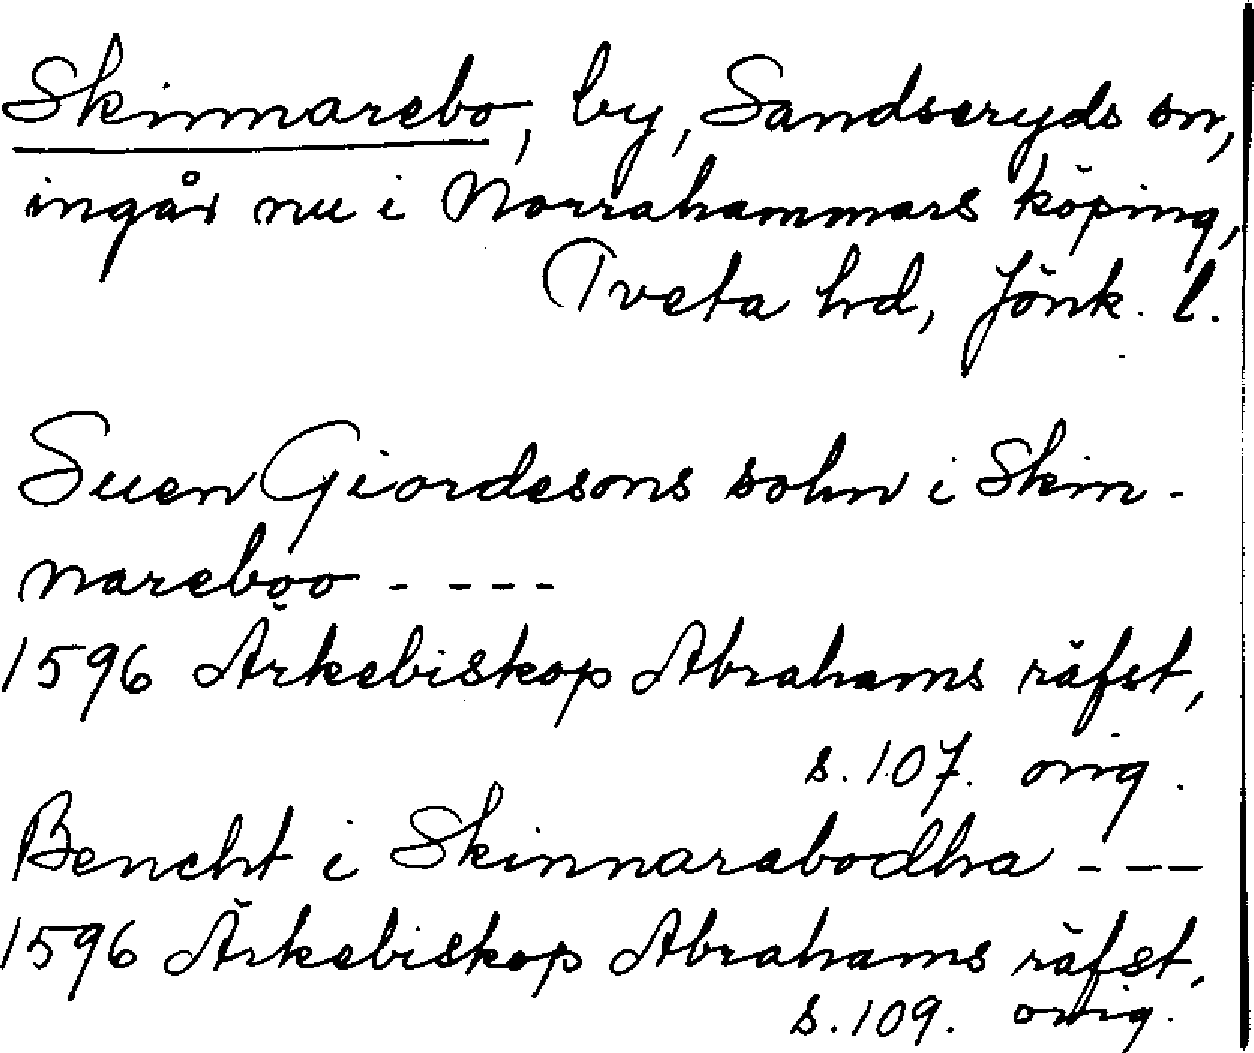 Skinnarebo, by, Sandseryds sn,
ingår nu i Norrahammars köping,
Tveta hd, Jönk. l.
Suen Giordesons sohn i Skin-
nareboo - - - -
1596 Ärkebiskop Abrahams räfst,
s. 107. orig.
Bencht i Skinnarabodha - - -
1596 Ärkebiskop Abrahams räfst,
s. 109. orig.